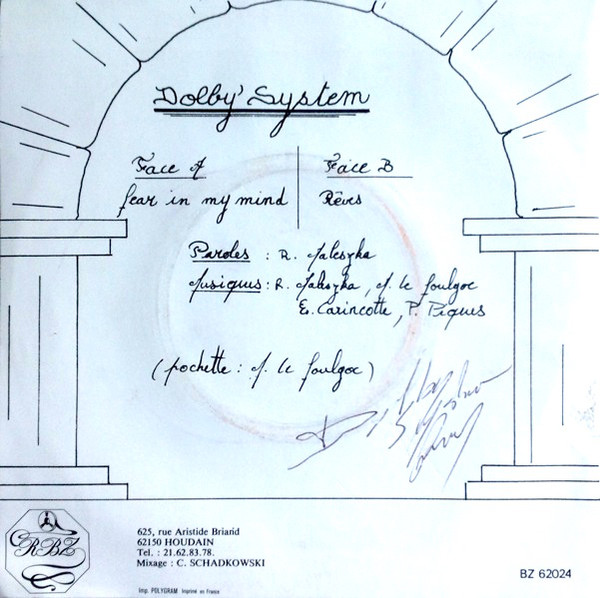 Dolby' System
Face A
Face B
fear in my mind
Rêves
Paroles : R. Jaleszka
Musiques : R. Jaleszka, J. le foulgoc
E. Carincotte, P. Piques
(pochette : J. le foulgoc)
Dolby
System
RBZ
625, rue Aristide Briand
62150 HOUDAIN
Tel. : 21.62.83.78.
Mixage : C. SCHADKOWSKI
BZ 62024
Imp. POLYGRAM Imprimé en France